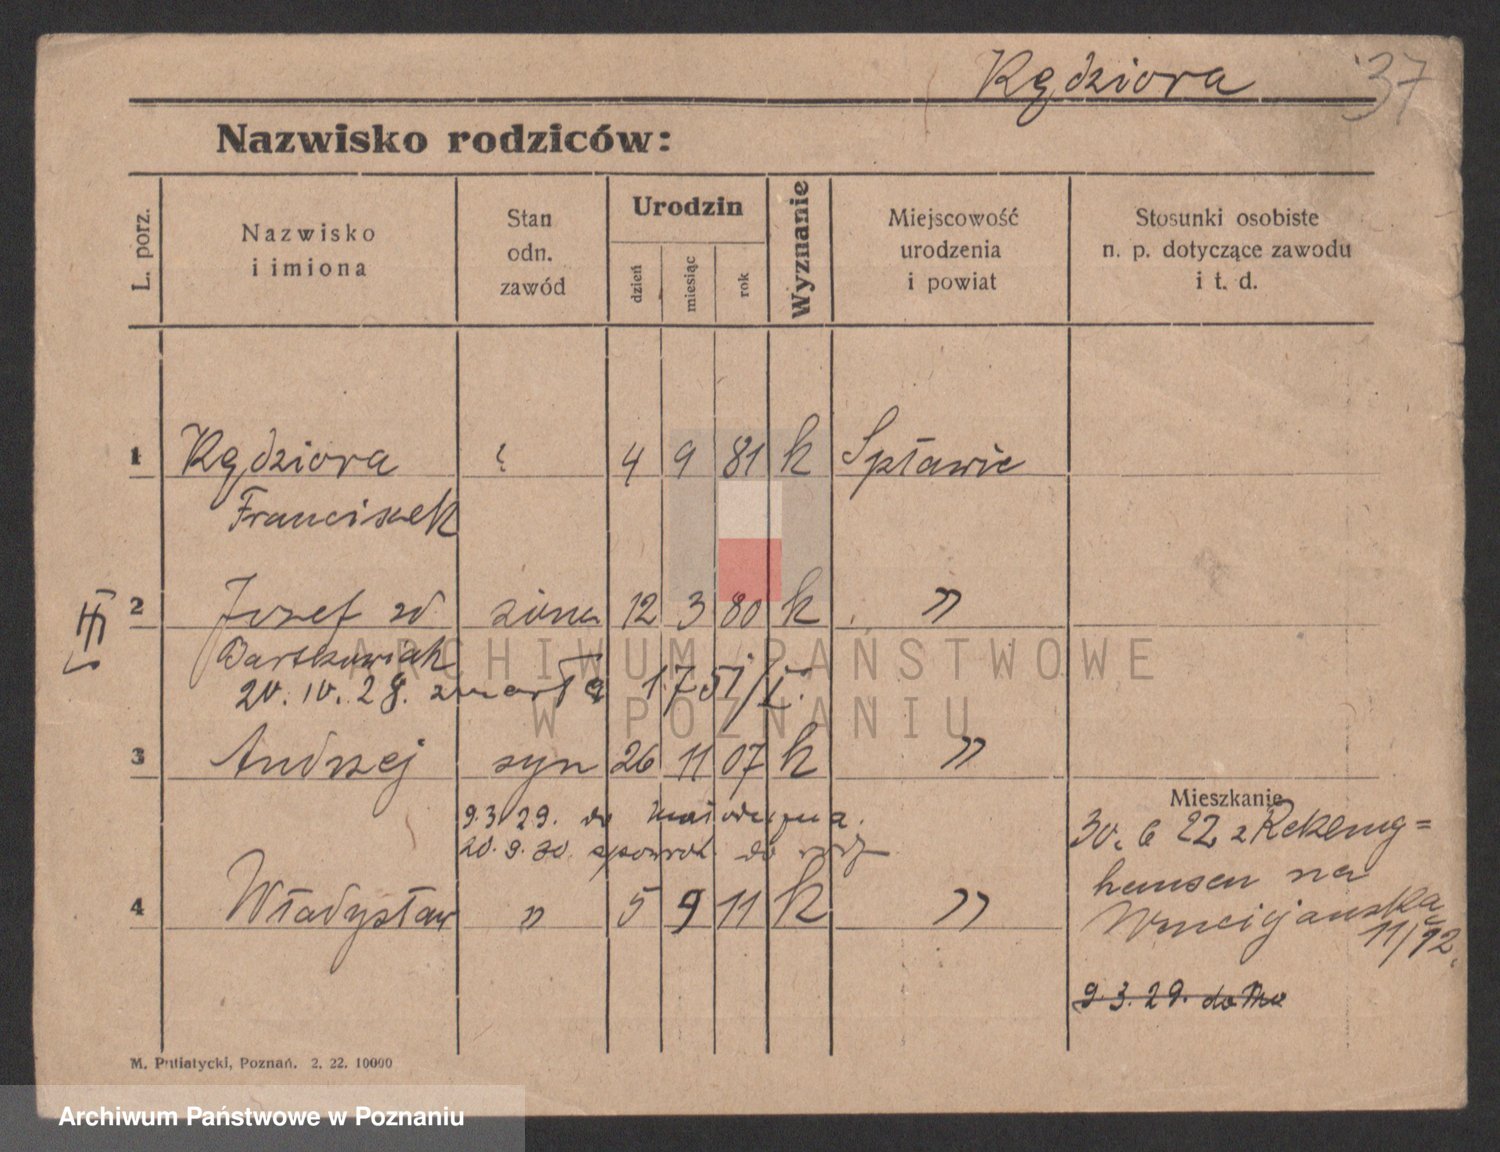 Kędziora 37
Nazwisko rodziców:
L. porz.
Nazwisko
i imiona
Stan
odn.
zawód
Urodzin
dzień
miesiąc
rok
Wyznanie
Miejscowość
urodzenia
i powiat
Stosunki osobiste
n. p. dotyczące zawodu
i t. d.
1 Kędziora ż 4 9 81 k Spławie
Franciszek
III 2 Jozefa żona 12 3 80 k "
Bartkowiak
20. IV. 28. zmarła 1751/I.
3 Andrzej syn 26 11 07 k "
Mieszkanie
9.3.29. do
20.9.30. do
4 Władysław " 5 9 11 k "
30. 6 22 z Rekling=
hausen na
11/12.
9.3.29. do
M. Putiatycki, Poznań. 2. 22. 10000
ARCHIWUM PAŃSTWOWE
W POZNANIU
Archiwum Państwowe w Poznaniu